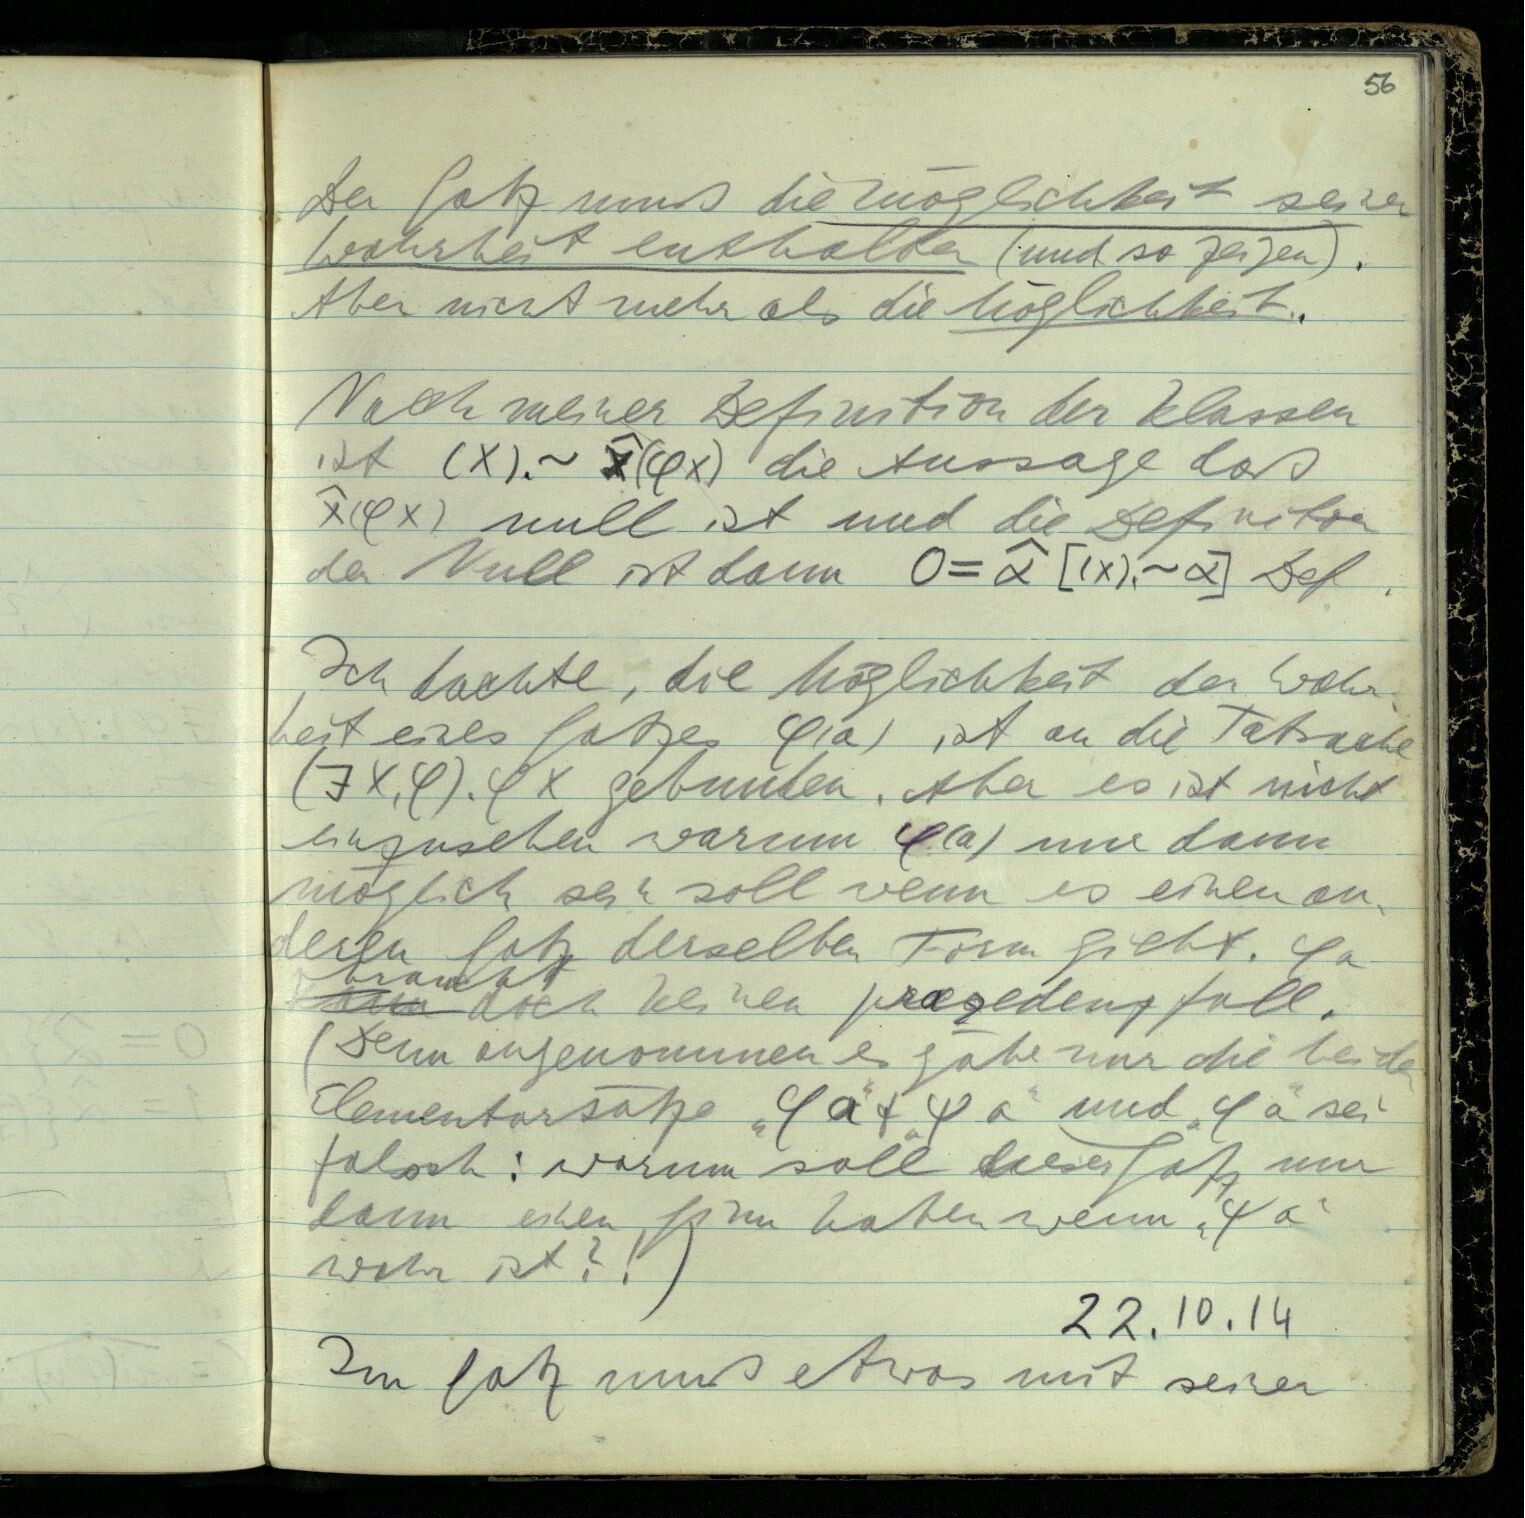 56
Der Satz muß die Möglichkeit seiner
Wahrheit enthalten (und so zeigen).
Aber nicht mehr als die Möglichkeit.
Nach meiner Definition der Klassen
ist (x).~x̂(φx) die Aussage daß
x̂(φx) null ist und die Definition
der Null ist dann 0=α̂[(x).~α] Def.
Ich dachte, die Möglichkeit der Wahr-
heit eines Satzes φ(a) ist an die Tatsache
(∃x,φ).φx gebunden. Aber es ist nicht
einzusehen warum φ(a) nur dann
möglich sein soll wenn es einen an-
deren Satz derselben Form giebt. φa
braucht
doch keinen præzedenzfall.
(Denn angenommen es gäbe nur die beiden
Elementarsätze „φa“ + „ψa“ und „φa“ sei
falsch: warum soll dieser Satz nur
dann einen Sinn haben wenn „ψa“
wahr ist?!)
22.10.14
Im Satz muß etwas mit seiner